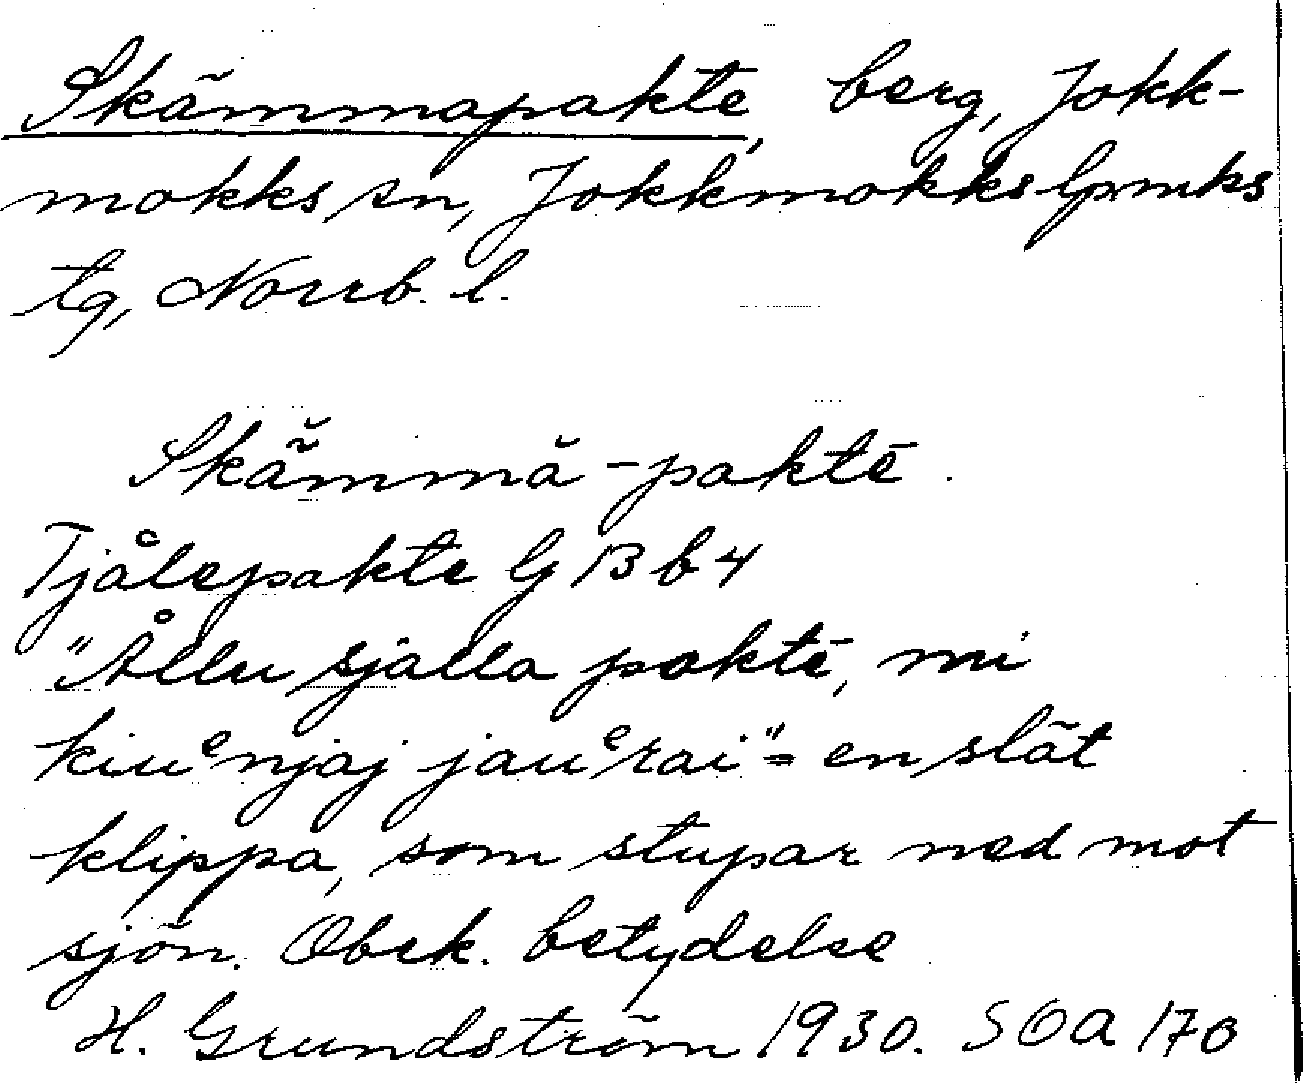 Skämmapakte, berg, Jokk-
mokks sn, Jokkmokks lpmks
tg, Norrb. l.
Skä̆mmă-paktē.
Tjålepakte G 13 b 4
"Ållu sjalla paktē, mi
kiuᵉnjaj jauᵉrai" = en slät
klippa, som stupar ned mot
sjön. Obek. betydelse
H. Grundström 1930. SOA 170